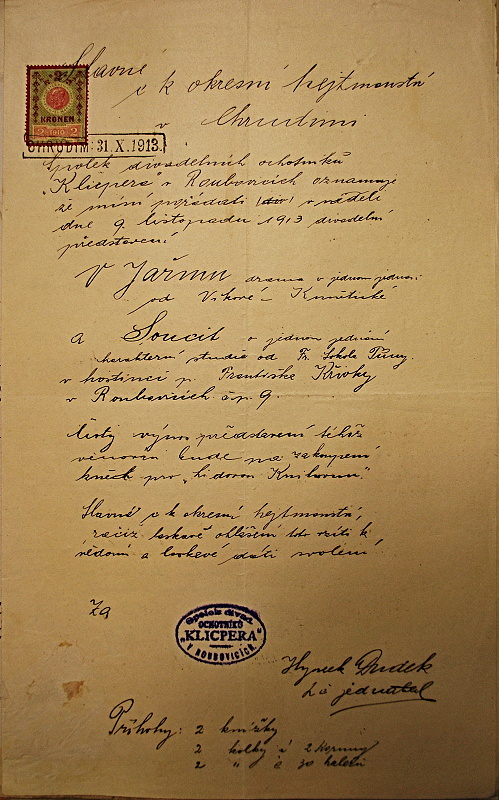 Slavné
c k okresní hejtmanství
v Chrudimi
2
KRONEN
2 1910 2
CHRUDIM: 31. X. 1913.
Spolek divadelních ochotníků
"Klicpera" v Roubovicích oznamuje
že míní pořádati v neděli
dne 9. listopadu 1913 divadelní
představení
V Jařmu drama v jednom jednání
od Vikové - Kunětické
a Soucit o jednom jednání
charakterní studie od Fr. Sokola Tůmy.
v hostinci p. Františka Křivky
v Roubovicích čp. 9.
Čistý výnos představení téhož
věnován bude na zakoupení
knih pro "Lidovou Knihovnu".
Slavné c k okresní hejtmanství,
račiž laskavě ohlášení toto vzíti k
vědomí a laskavě dáti svolení.
Za
Spolek divad.
OCHOTNÍKŮ
"KLICPERA"
V ROUBOVICÍCH.
Hynek Dudek
t.č. jednatel
Přílohy: 2 knížky
2 kolky á 2 Koruny
2 " á 30 haléřů